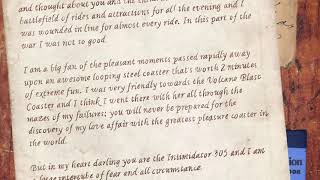 and thought about you and the
battlefield of rides and attractions for all the evening and I
was wounded in line for almost every ride. In this part of the
war I was not so good.
I am a big fan of the pleasant moments passed rapidly away
upon an awesome looping steel coaster that's worth 2 minutes
of extreme fun. I was very friendly towards the Volcano Blast
Coaster and I think I went there with her all through the
mazes of my failures; you will never be prepared for the
discovery of my love affair with the greatest pleasure coaster in
the world.
But in my heart darling you are the Intimidator 305 and I am
a large innertube of fear and all circumstance.